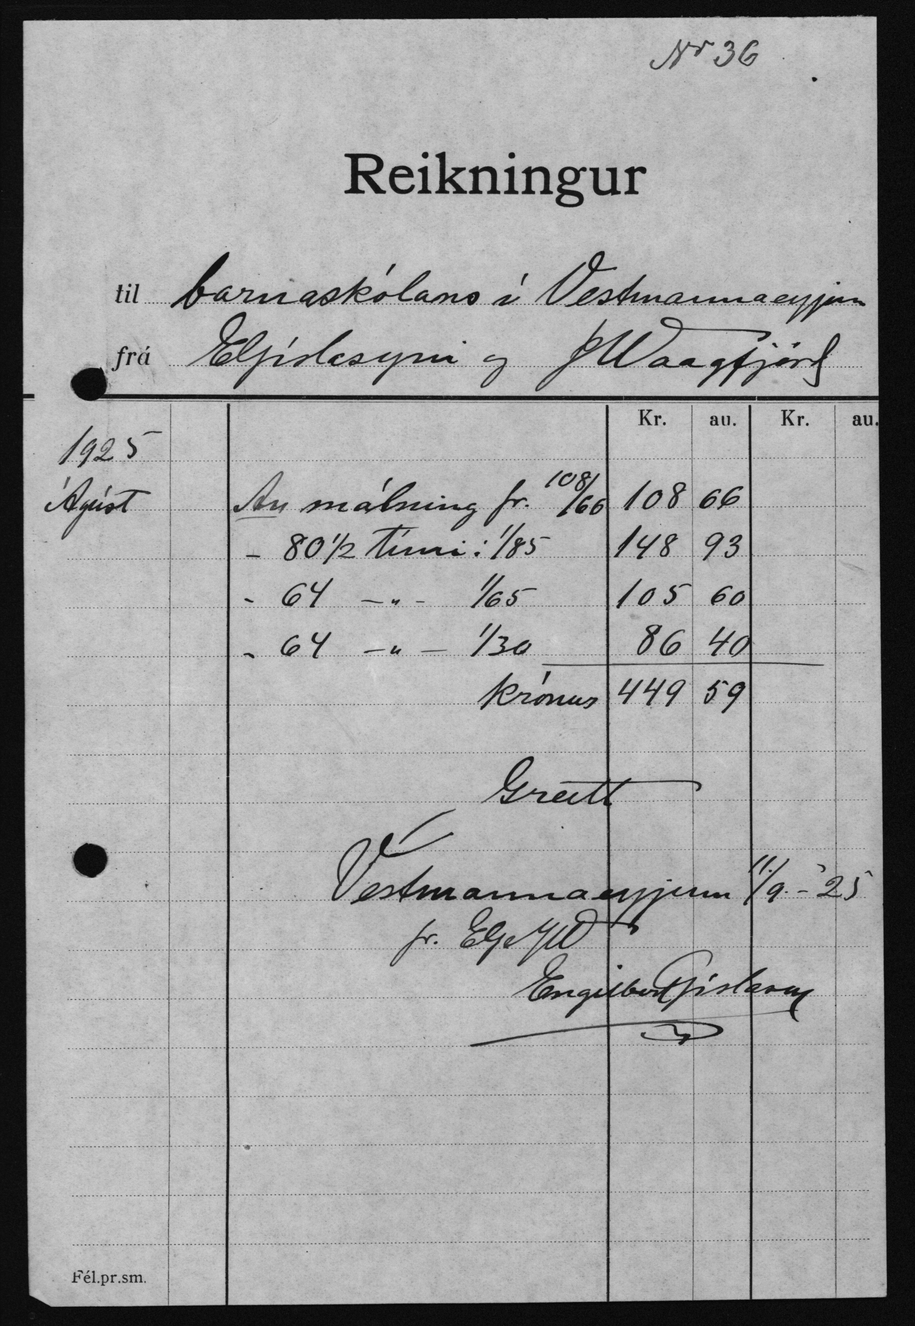 Nr 36
Reikningur
til barnaskólans í Vestmannaeyjum
frá EGíslasyni og JWaagfjörð
Kr. au. Kr. au.
1925
Ágúst An málning fr. 108/66 108 66
- 80 1/2 tími : 1/85 148 93
- 64 - " - 1/65 105 60
- 64 - " - 1/30 86 40
Krónur 449 59
Greitt
Vestmannaeyjum 11/9 - '25
fr. EG & JW
Engilbert Gíslason
Fél.pr.sm.